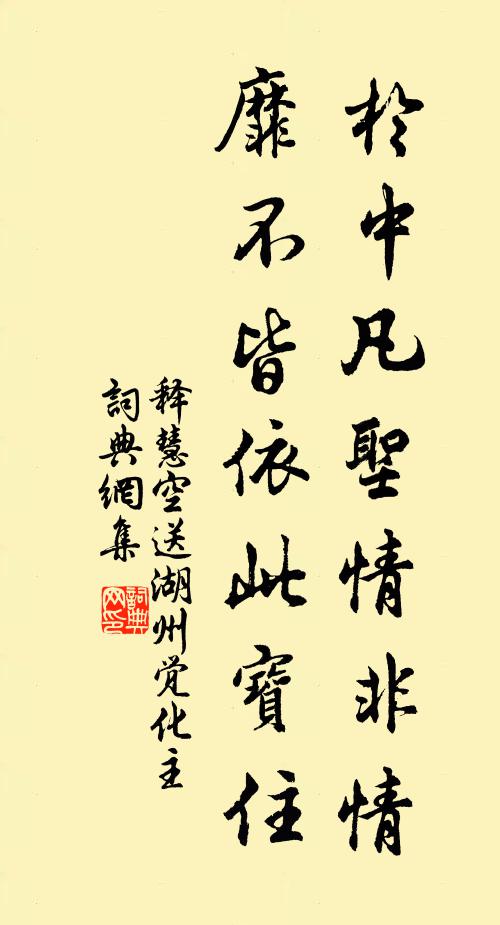 於中凡聖情非情
靡不皆依此寶住
释慧空送湖州觉化主
詞典網集
詞典
网印